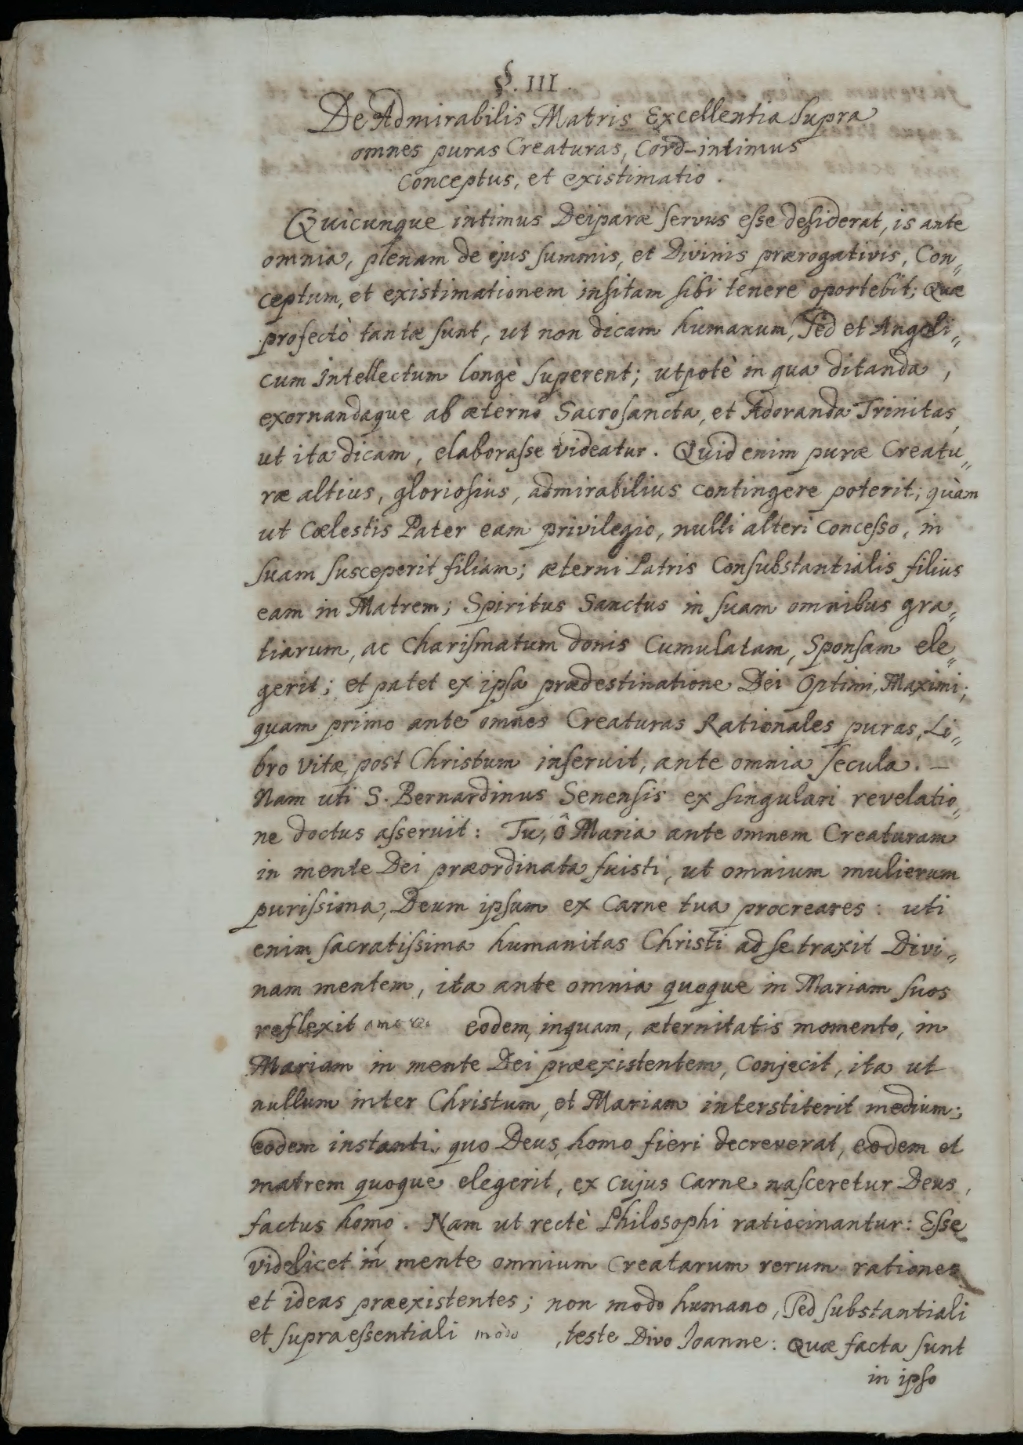 §. III.
De Admirabilis Matris Excellentia supra
omnes puras Creaturas, Cord-intimus
Conceptus, et existimatio.
Quicunque intimus Deiparæ servus esse desiderat, is ante
omnia, plenam de ejus summis, et Divinis prærogativis, Con„
ceptum, et existimationem insitam sibi tenere oportebit; Quæ
profectò tantæ sunt, ut non dicam humanum, sed et Angeli„
cum Intellectum longè superent; utpotè in qua ditanda,
exornandaque ab æterno Sacrosancta, et Adoranda Trinitas,
ut ita dicam, elaborasse videatur. Quid enim puræ Creatu„
ræ altius, gloriosius, admirabilius contingere poterit; quàm
ut Cœlestis Pater eam privilegio, nulli alteri Concesso, in
suam susceperit filiam; æterni Patris Consubstantialis filius
eam in Matrem; Spiritus Sanctus in suam omnibus gra„
tiarum, ac Charismatum donis Cumulatam, Sponsam ele„
gerit; et patet ex ipsa prædestinatione Dei Optimi, Maximi;
quam primo ante omnes Creaturas Rationales puras, Li„
bro Vitæ post Christum inseruit, ante omnia secula. –
Nam uti S. Bernardinus Senensis ex singulari revelatio„
ne doctus asseruit: Tu, ô Maria ante omnem Creaturam
in mente Dei præordinata fuisti, ut omnium mulierum
purissiona, Deum ipsum ex Carne tua procreares: uti
enim sacratissima humanitas Christi ad se traxit Divi„
nam mentem, ita ante omnia quoque in Mariam suos
reflexit eodem, inquam, æternitatis momento, in
Mariam in mente Dei præexistentem, Conjecit, ita ut
nullum inter Christum, et Mariam interstiterit medium;
eodem instanti quo Deus homo fieri decreverat, eodem et
matrem quoque elegerit, ex cujus Carne nasceretur Deus,
factus homo. Nam ut rectè Philosophi ratiocinantur: Esse
videlicet in mente omnium Creatarum rerum rationes
et ideas præexistentes; non modo humano, sed substantiali
et supraessentiali modo, teste Divo Joanne: Quæ facta sunt
in ipso